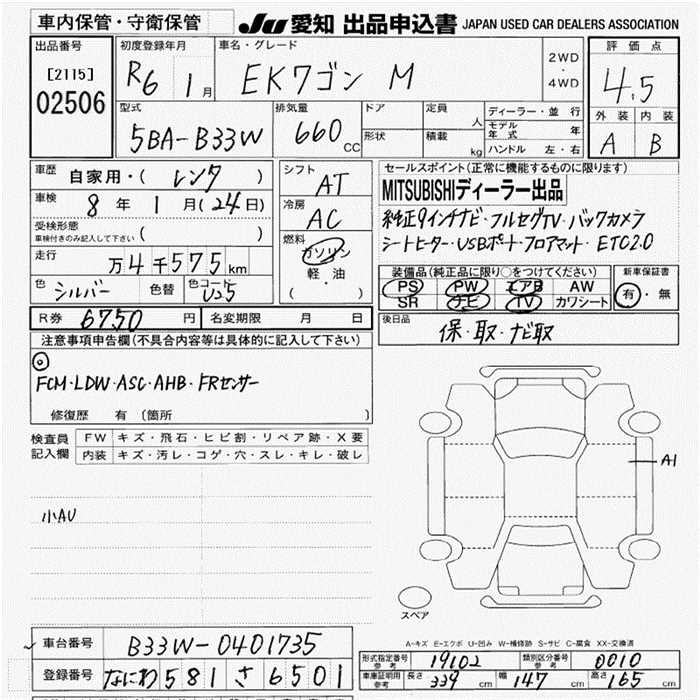 車内保管・守衛保管
JU 愛知 出品申込書 JAPAN USED CAR DEALERS ASSOCIATION
出品番号
[2115]
02506
初度登録年月
R6 1月
車名・グレード
EKワゴン M
2WD
・
4WD
評価点
4.5
外装 内装
A B
型式
5BA-B33W
排気量
660 CC
ドア
形状
定員 人
積載 kg
ディーラー・並行
モデル年式 年
ハンドル 左・右
車歴 自家用・( レンタ )
車検 8年 1月(24日)
受検形態
車検付きのみ記入して下さい ( )
走行 万4千575km
色 シルバー 色替 色コード U25
シフト AT
冷房 AC
燃料 ガソリン
軽・油
( )
セールスポイント(正常に機能するものに限ります)
MITSUBISHIディーラー出品
純正9インチナビ・フルセグTV・バックカメラ
シートヒーター・USBポート・フロアマット・ETC2.0
装備品(純正品に限り○をつけてください)
PS PW エアB AW
SR ナビ TV カワシート
新車保証書
有・無
R券 6750 円 名変期限 月 日
後日品 保・取・ナビ取
注意事項申告欄(不具合内容等は具体的に記入して下さい)
FCM・LDW・ASC・AHB・FRセンサー
修復歴 有 (箇所 )
検査員記入欄
FW キズ・飛石・ヒビ割・リペア跡・X要
内装 キズ・汚レ・コゲ・穴・スレ・キレ・破レ
小AU
A1
スペア
A-キズ E-エクボ U-凹み W-補修跡 S-サビ C-腐食 XX-交換済
車台番号 B33W-0401735
登録番号 なにわ 581 さ 6501
形式指定番号 参考 19102 類別区分番号 参考 0010
車庫証明用 参考 長さ 339 cm 幅 147 cm 高さ 165 cm